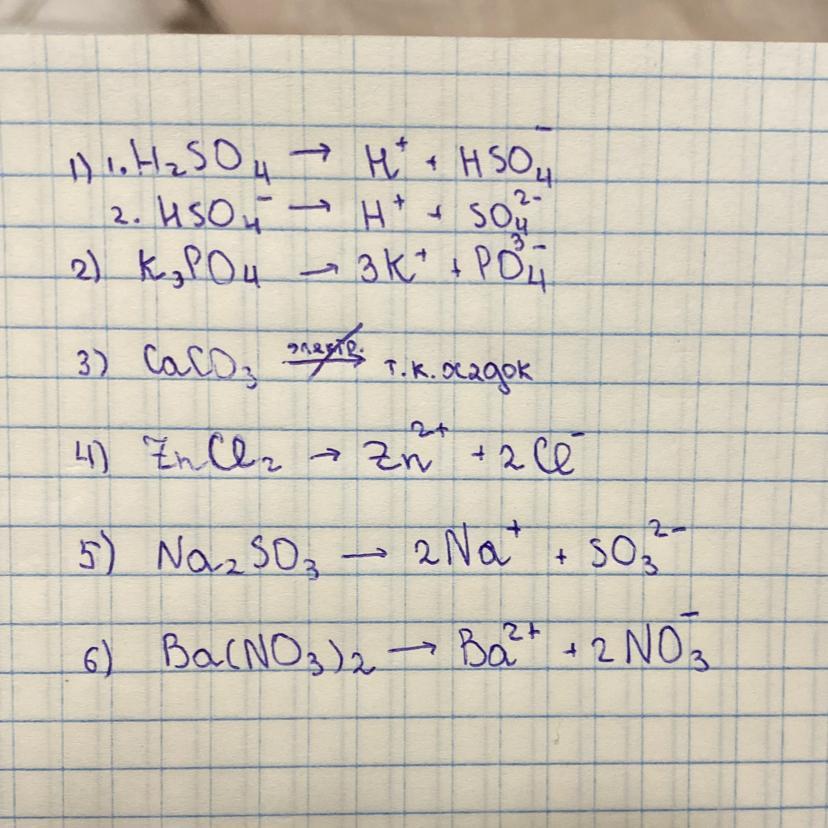 1) 1. H₂SO₄ → H⁺ + HSO₄⁻
2. HSO₄⁻ → H⁺ + SO₄²⁻
2) K₃PO₄ → 3K⁺ + PO₄³⁻
3) CaCO₃ → т.к. осадок
4) ZnCl₂ → Zn²⁺ + 2Cl⁻
5) Na₂SO₃ → 2Na⁺ + SO₃²⁻
6) Ba(NO₃)₂ → Ba²⁺ + 2NO₃⁻